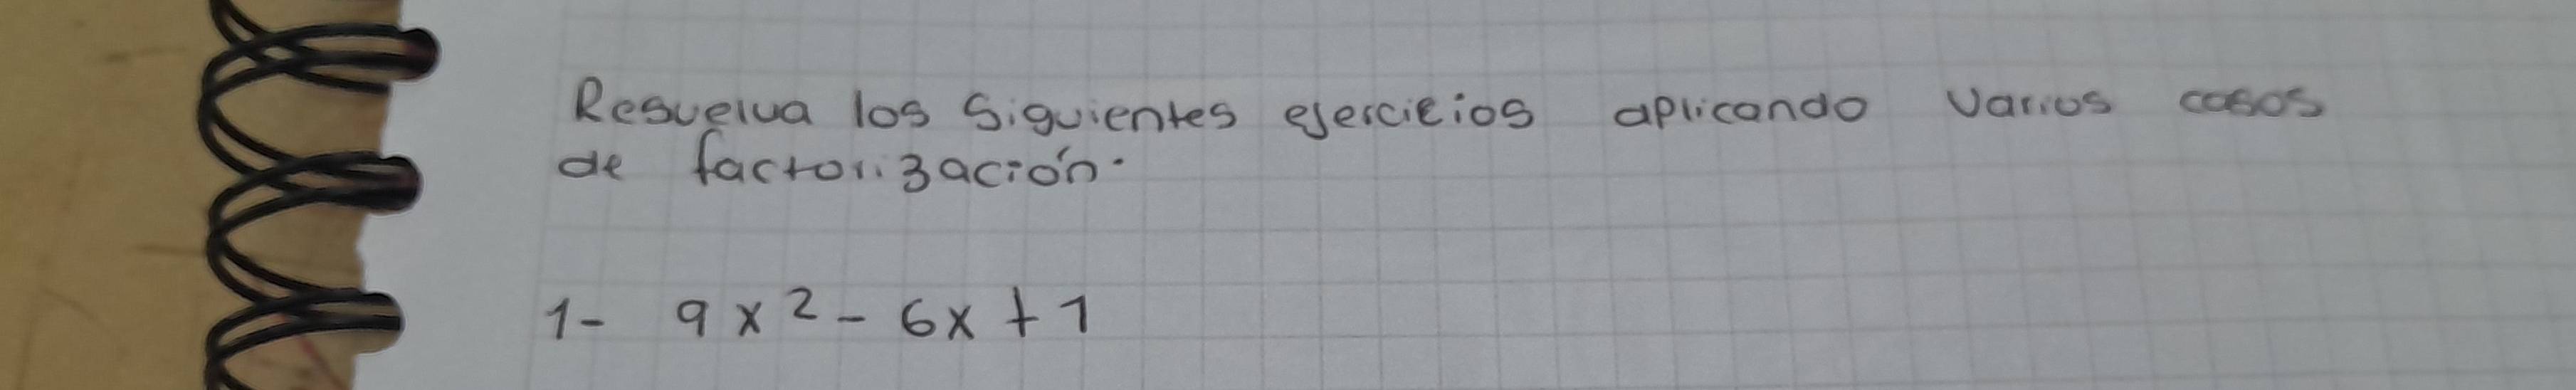 Resuelva los Siguientes ejercicios aplicando Varios casos
de factorización.
1- 9x² - 6x + 1